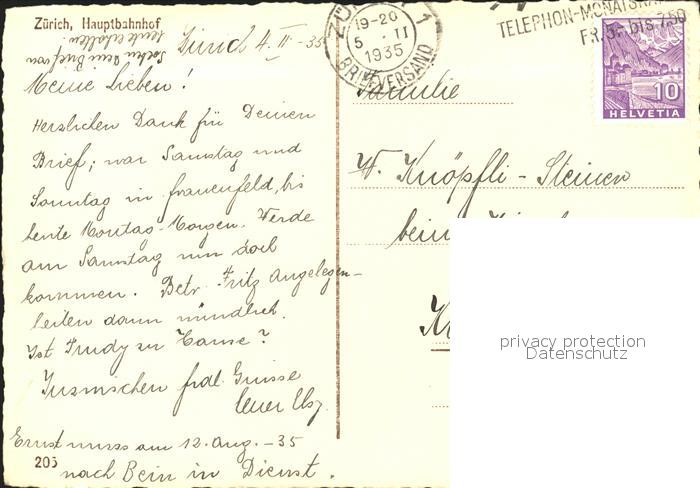 Zürich, Hauptbahnhof
Soeben Dein Brief von
heute erhalten.
Zürich 4. II - 35
Meine Lieben!
Herzlichen Dank für Deinen
Brief; war Samstag und
Sonntag in Frauenfeld, bis
heute Montag-Morgen. Werde
am Samstag nun doch
kommen. Betr. Fritz Angelegen-
heiten dann mündlich.
Ist Trudy zu Hause?
Inzwischen frdl. Grüsse
Euer
Ernst muss am 12. Aug. - 35
nach Bern in Dienst.
205
ZÜRICH 1
19-20
5. II
1935
BRIEFVERSAND
TELEPHON-MONATS
FR. BIS 7.50
10
HELVETIA
Familie
W. Knöpfli - Steiner
beim
privacy protection
Datenschutz